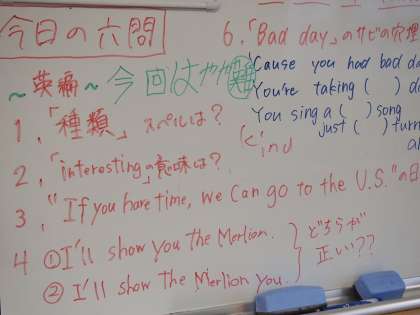 今日の六問
〜英編〜今回はやや難
1.「種類」スペルは？
kind
2.「interesting」の意味は？
3."If you have time, we can go to the U.S."の日
4 ①I'll show you the Merlion.
②I'll show the Merlion you.
どちらが
正しい??
6.「Bad day」のサビの穴埋
Cause you had bad da
You're taking ( ) d
You sing a ( ) song
just ( ) turn
a